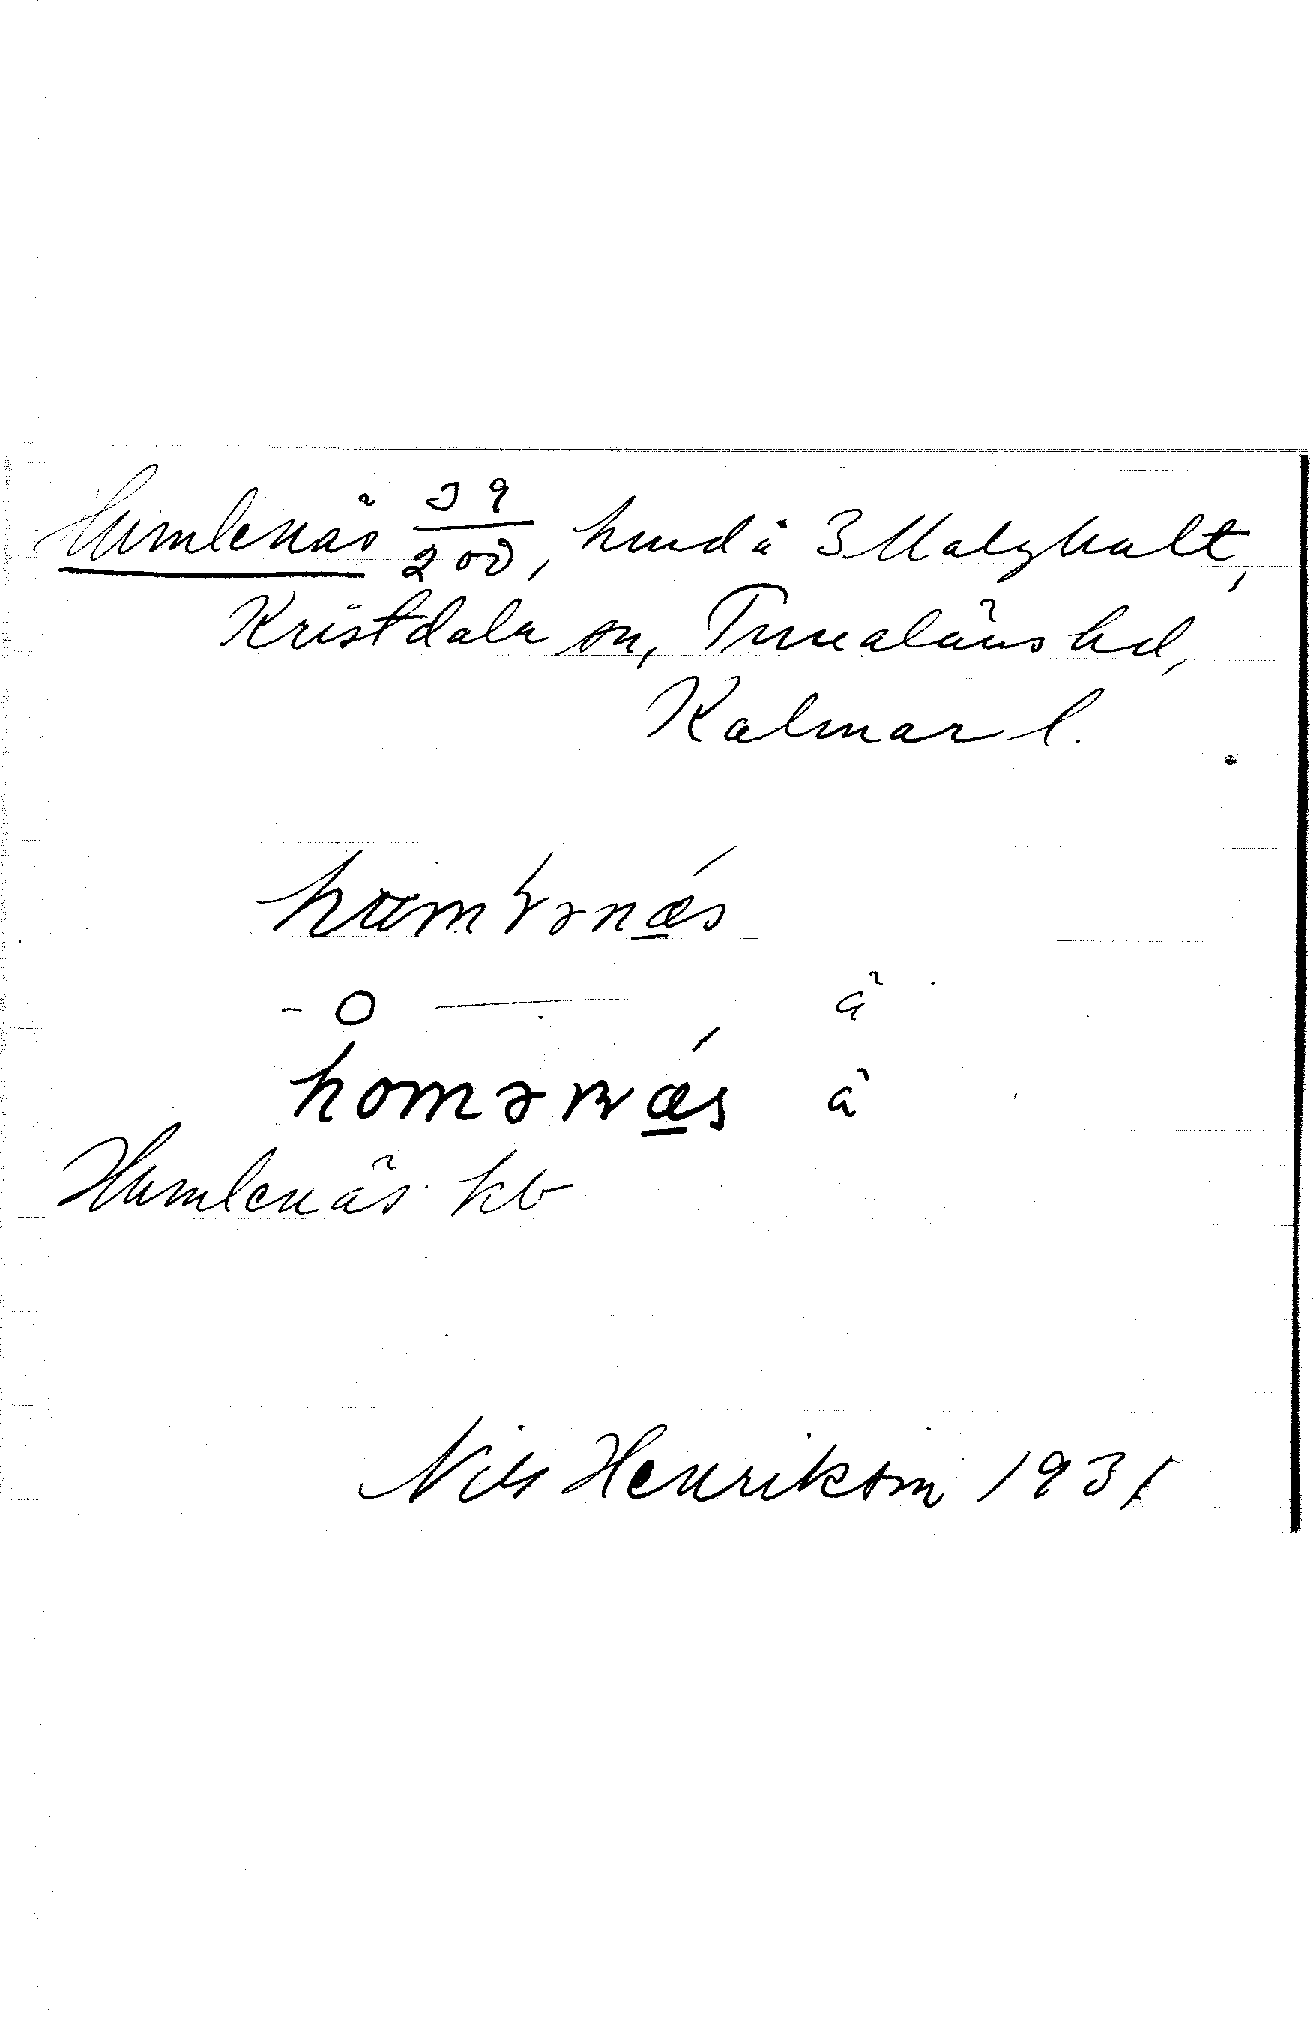 Humlenäs 39/200, hmd å 3 Malghult,
Kristdala sn, Tunaläns hd,
Kalmar l.
-o- ä
homənǽ̠s ä
Humlenäs kb
Nils Henrikson 1931